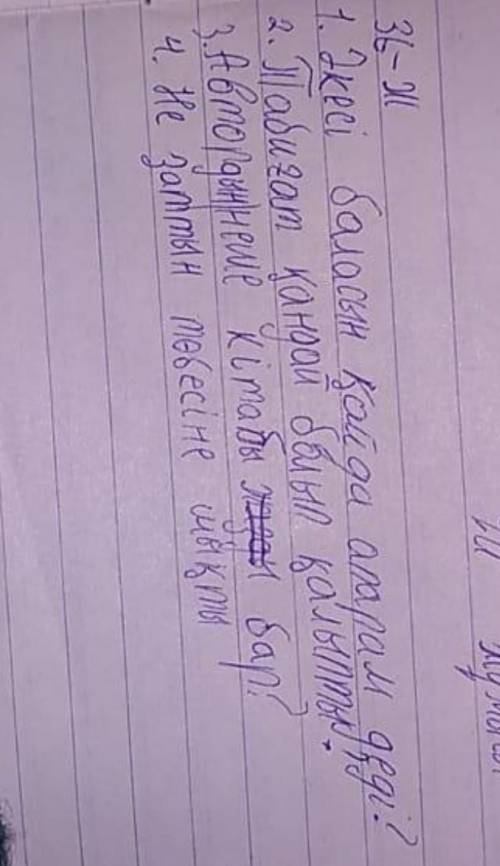 36-Ж
1. Әкесі баласын қайда апарам деді?
2. Табиғат қандай болып қалыпты?
3. Автордың неше кітабы бар?
4. Не заттын төбесіне шықты